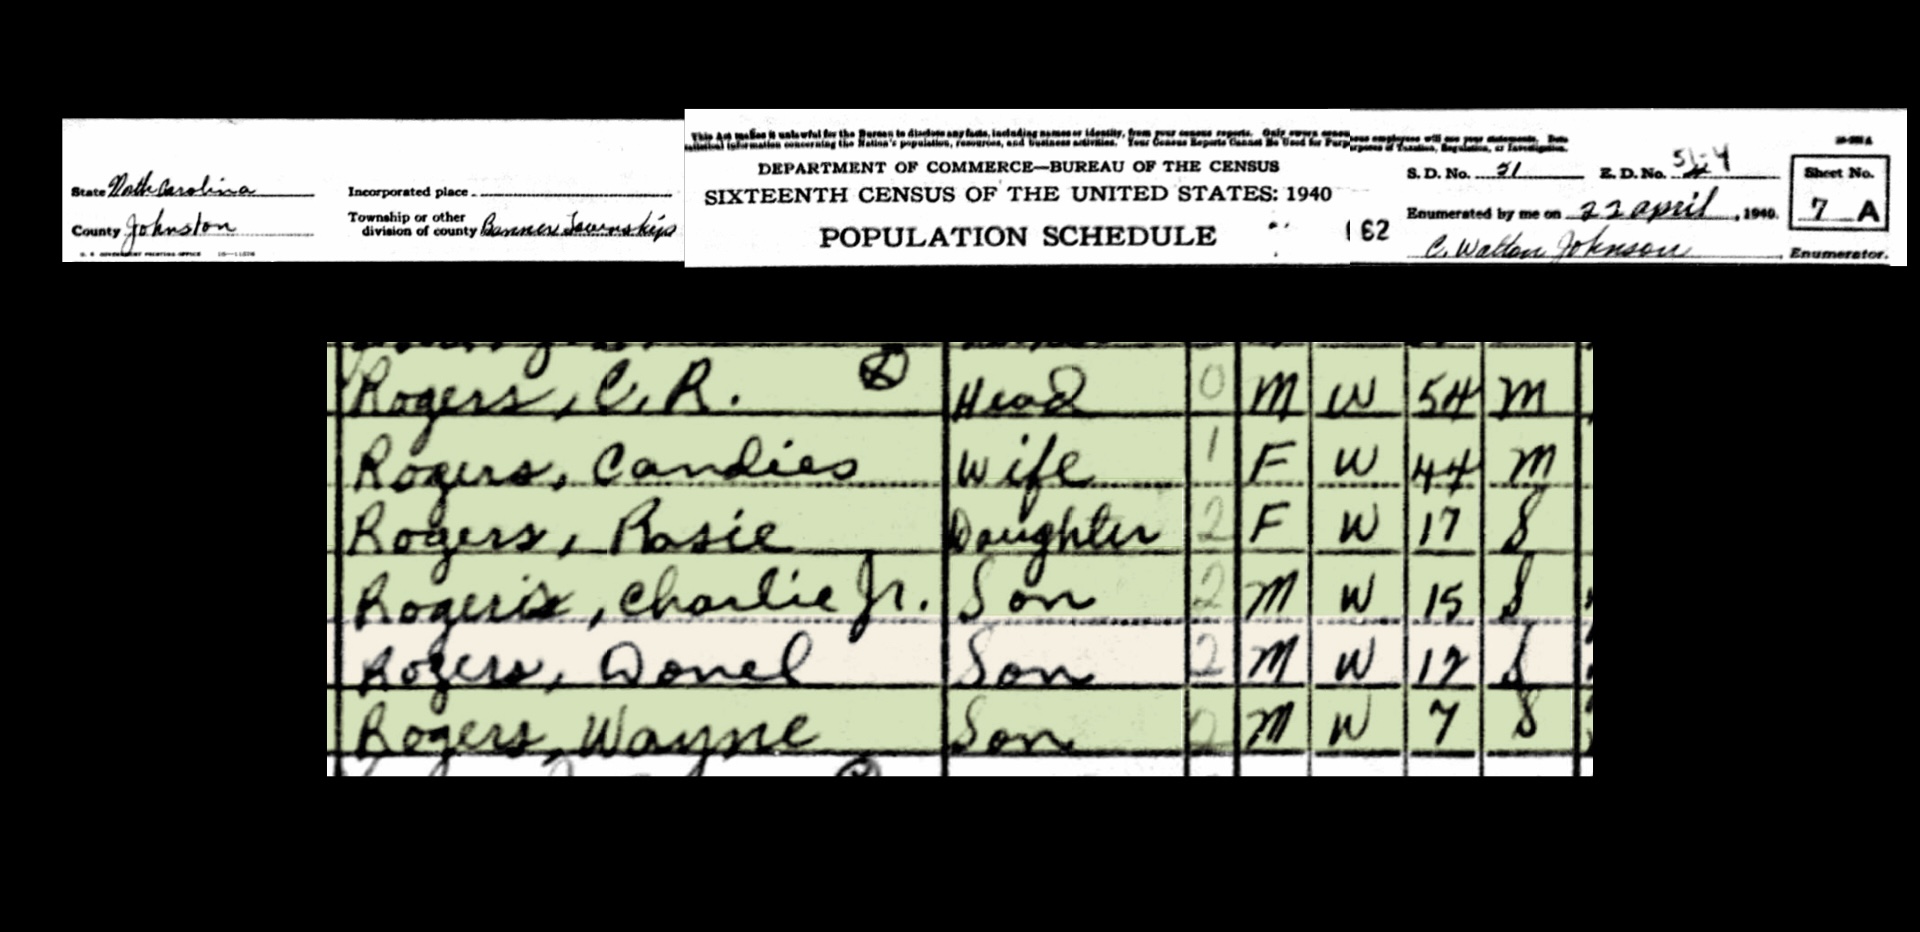 This Act makes it unlawful for the Bureau to disclose any facts, including names or identity, from your census reports. Only sworn census employees will see your statements. Data
information concerning the Nation's population, resources, and business activities. Your Census Reports Cannot Be Used for Purposes of Taxation, Regulation, or Investigation.
DEPARTMENT OF COMMERCE—BUREAU OF THE CENSUS
SIXTEENTH CENSUS OF THE UNITED STATES: 1940
POPULATION SCHEDULE
State North Carolina
County Johnston
Incorporated place
Township or other
division of county Banner Townships
62
S. D. No. 31 E. D. No. 51-4
Enumerated by me on 22 april, 1940.
C. Walton Johnson, Enumerator.
Sheet No.
7 A
Rogers, C. R. Head 0 M W 54 M
Rogers, Candies Wife 1 F W 44 M
Rogers, Rosie Daughter 2 F W 17 S
Rogers, Charlie Jr. Son 2 M W 15 S
Rogers, Donel Son 2 M W 12 S
Rogers, Wayne Son 2 M W 7 S